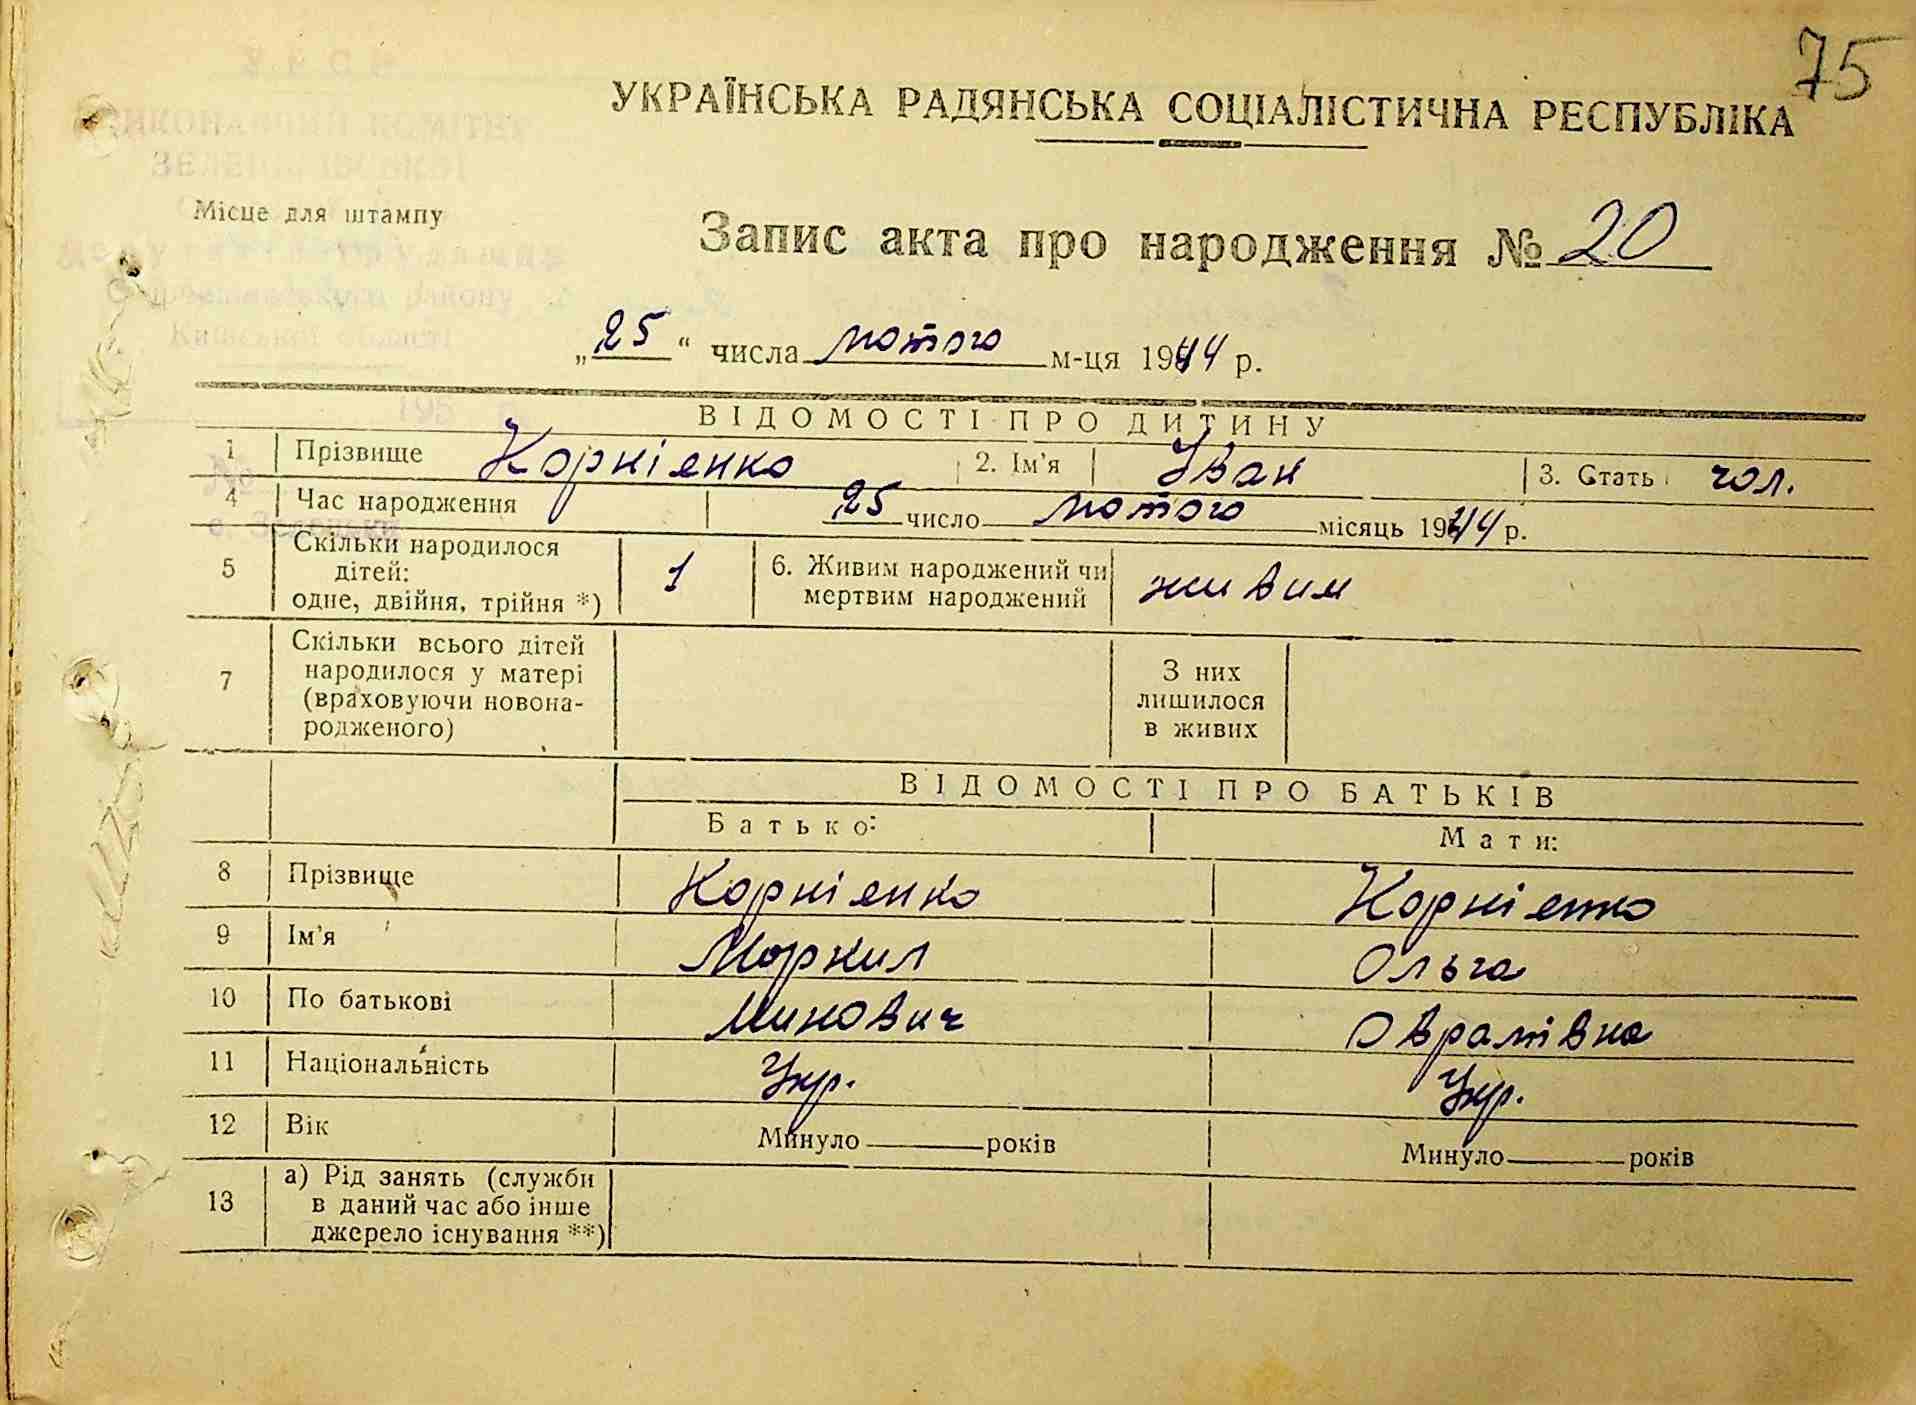 75
УКРАЇНСЬКА РАДЯНСЬКА СОЦІАЛІСТИЧНА РЕСПУБЛІКА
Місце для штампу
Запис акта про народження № 20
„25“ числа лютого м-ця 1944 р.
ВІДОМОСТІ ПРО ДИТИНУ
1 Прізвище Корнієнко 2. Ім'я Іван 3. Стать чол.
4 Час народження 25 число лютого місяць 1944 р.
5 Скільки народилося дітей: одне, двійня, трійня *) 1 6. Живим народжений чи мертвим народжений живим
7 Скільки всього дітей народилося у матері (враховуючи новонародженого) З них лишилося в живих
ВІДОМОСТІ ПРО БАТЬКІВ
Батько: Мати:
8 Прізвище Корнієнко Корнієнко
9 Ім'я Маркил Ольга
10 По батькові Минович Оврамівна
11 Національність Укр. Укр.
12 Вік Минуло років Минуло років
13 а) Рід занять (служби в даний час або інше джерело існування **)